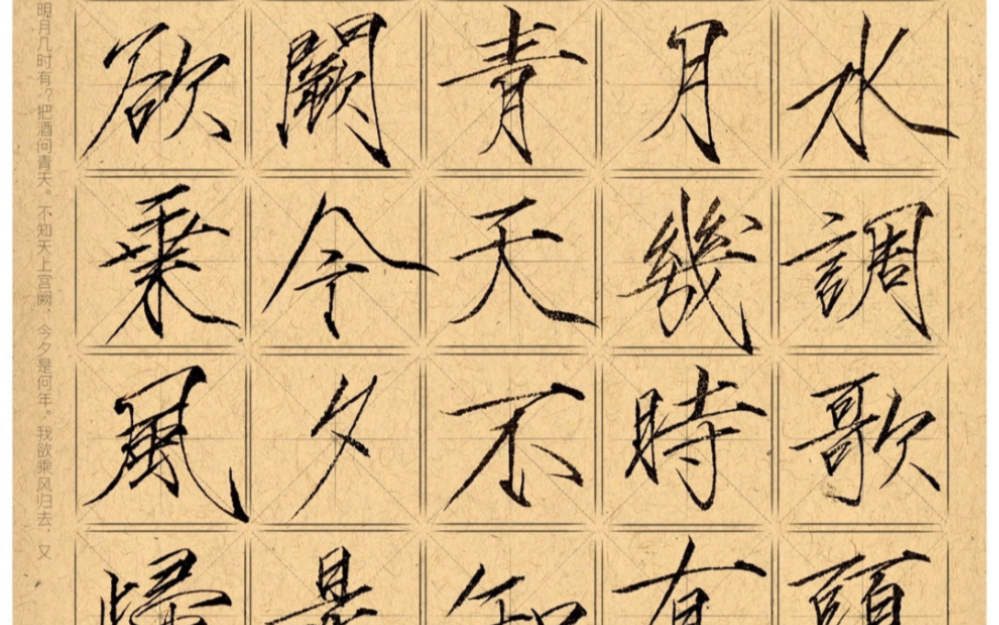 水調歌頭
月幾時有
青天不知
闕今夕是
欲乘風歸
明月几时有？把酒问青天。不知天上宫阙，今夕是何年。我欲乘风归去，又